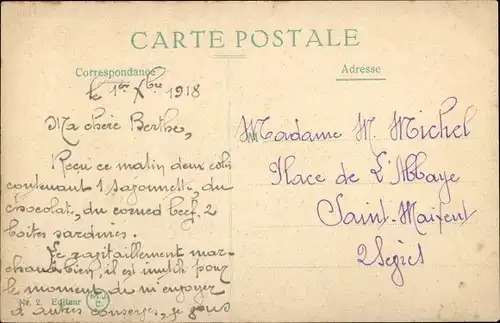 CARTE POSTALE
Correspondance
Adresse
le 1er Xbre 1918
Ma chère Berthe,
Reçu ce matin deux colis
contenant 1 , du
chocolat, du corned beef, 2
boîtes sardines.
Le ravitaillement mar-
chant bien, il est inutile pour
le moment de m'envoyer
d'autres conserves, je puis
Nr. 2. Editeur
Madame M. Michel
Place de L'Abbaye
Saint-Maixent
2 Sèvres